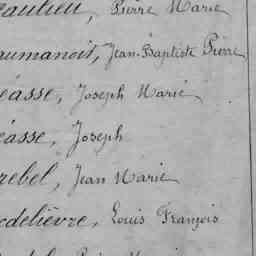 eaulieu, Pierre Marie
aumanoit, Jean-Baptiste Pierre
éasse, Joseph Marie
éasse, Joseph
rebel, Jean Marie
edelièvre, Louis François